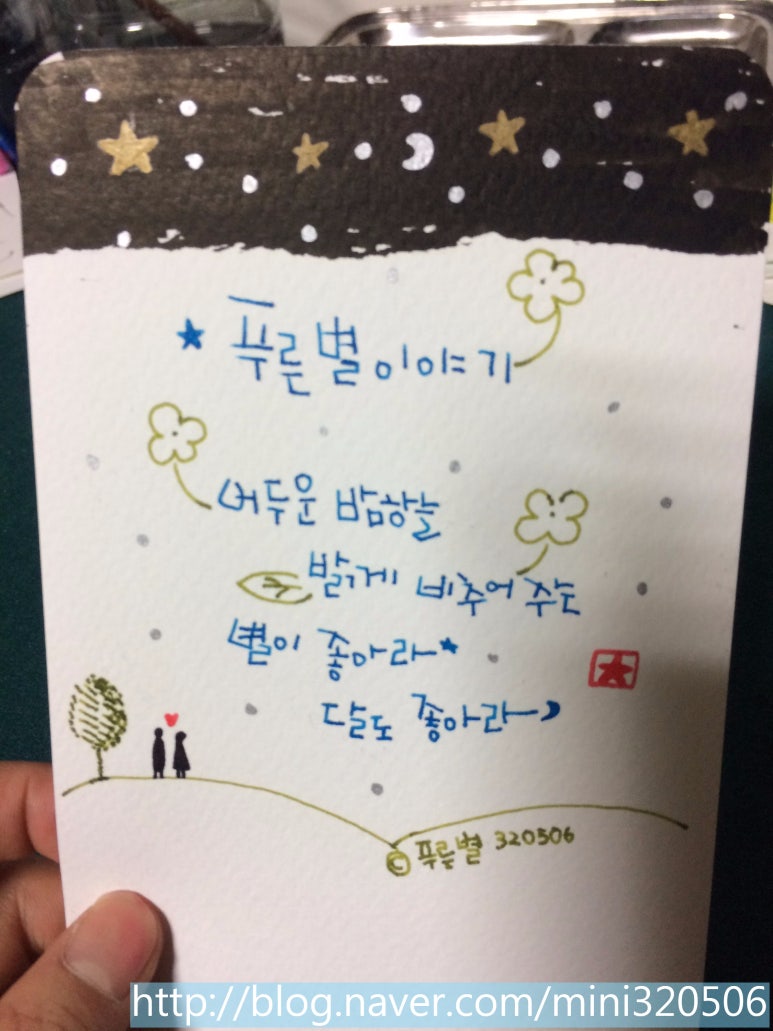 푸른별이야기
어두운 밤하늘
밝게 비추어 주는
별이 좋아라
달도 좋아라
© 푸른별 320506
http://blog.naver.com/mini320506